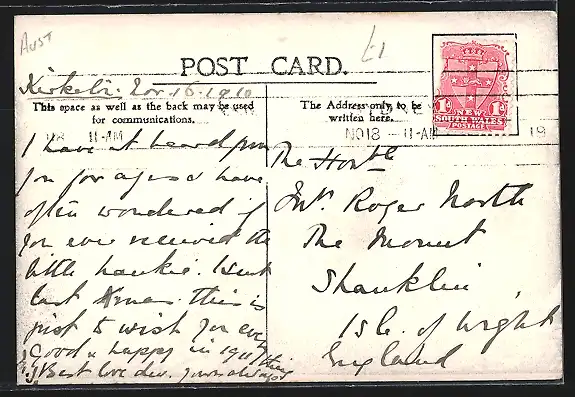 AUST
£1
POST CARD.
Nov 16. 1910
This space as well as the back may be used
for communications.
The Address only to be
written here.
11-AM
NO18 11-AM
19
1D 1D
NEW
SOUTH WALES
POSTAGE
I have not heard from
you for ages & have
often wondered if
you ever received the
little hankie. I sent
last Xmas. this is
just to wish you every
good & happy in 1911
Best love dear. yours always
The Honble
Mrs Roger North
The Mount
Shanklin
Isle. of Wight
England